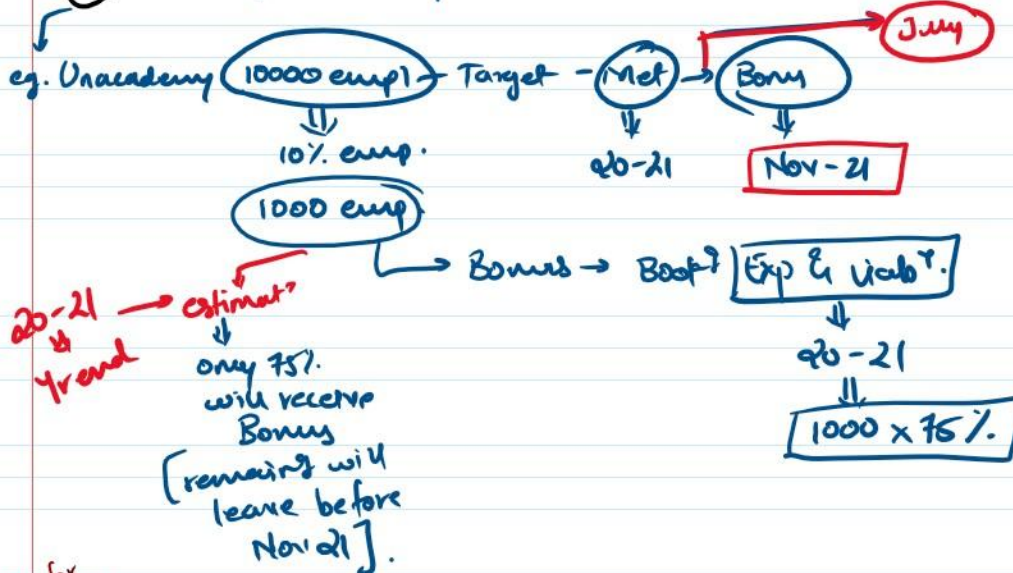 July
eg. Unacademy 10000 empl - Target - Met → Bonus
⇓ ⇓ ⇓
10% emp. 20-21 Nov-21
1000 emp
Bonus → Book? Exp & Liabʸ.
20-21 → estimatⁿ ⇓
Trend only 75% 20-21
will receive ⇓
Bonus 1000 x 75%.
[remaining will
leave before
Nov 21].